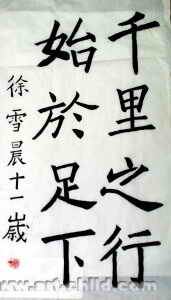 千里之行
始於足下
徐雪晨十一歲
www.art-child.com